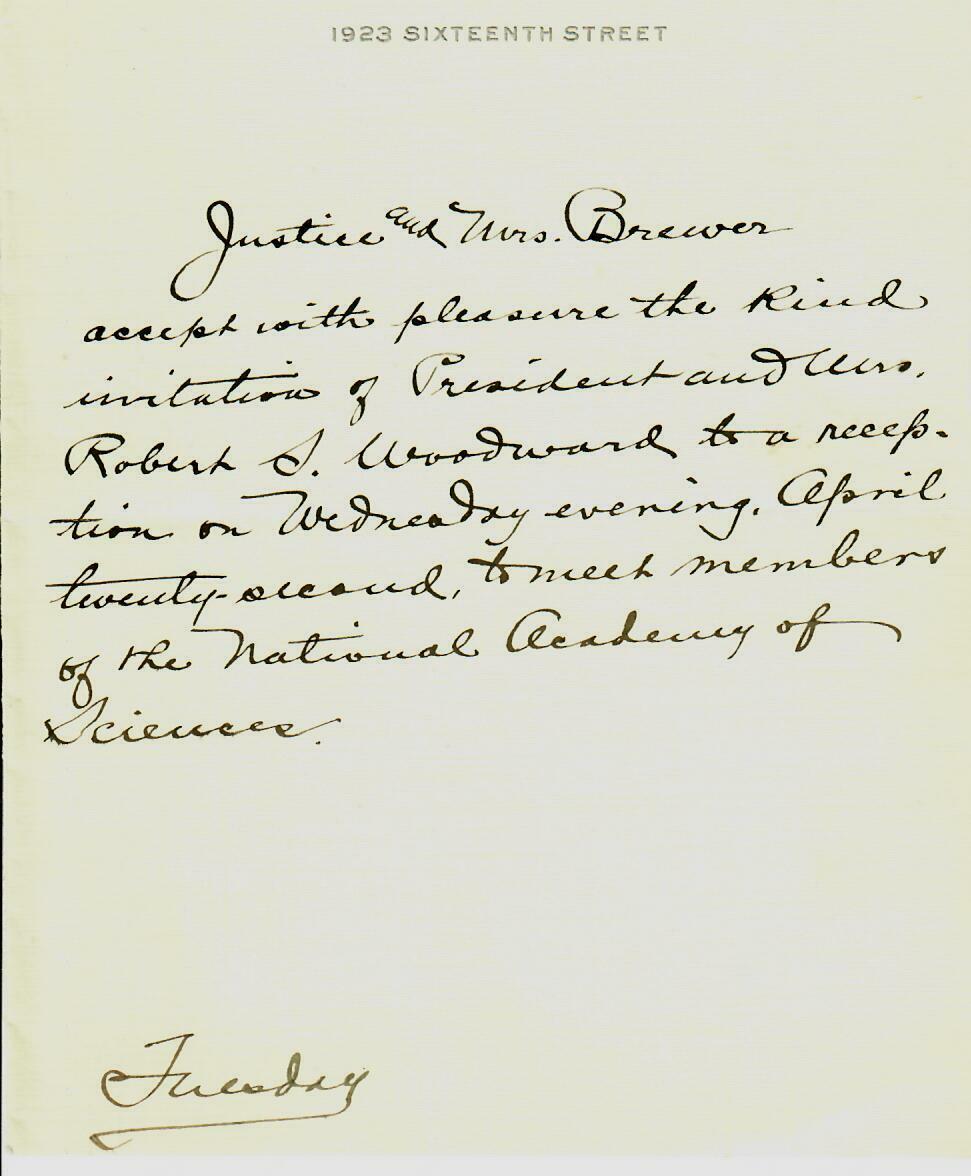 1923 SIXTEENTH STREET
Justice and Mrs. Brewer
accept with pleasure the kind
invitation of President and Mrs.
Robert S. Woodward to a recep-
tion on Wednesday evening, April
twenty-second, to meet members
of the National Academy of
Sciences.
Tuesday